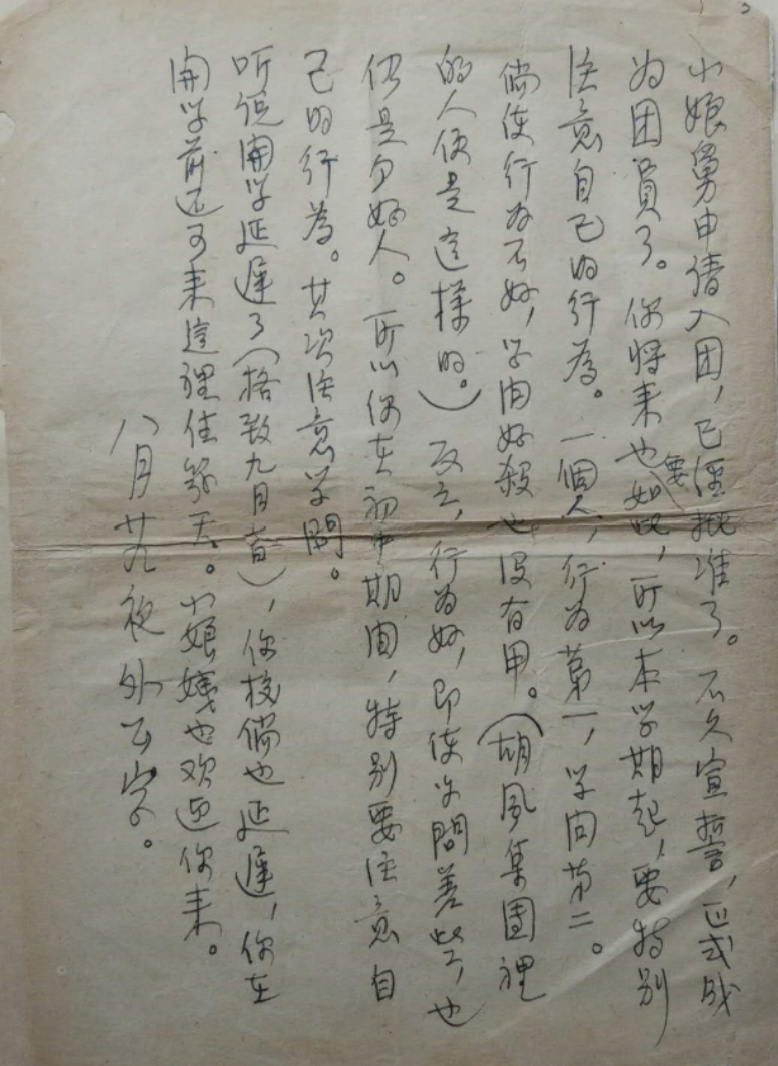 小娘舅申请入团，已經批准了。不久宣誓，正式成
为团員了。你将来也要如此，所以本学期起，要特别
注意自己的行為。一個人，行为第一，学问第二。
倘使行为不好，学问好殺也没有用。（胡风集團裡
的人便是這樣的。）反之，行为好，即使学問差些，也
仍是个好人。所以你在初中期间，特别要注意自
己的行為。其次注意学問。
听说開学延遲了（格致九月 ），你校倘也延遲，你在
開学前还可来這裡住幾天。小娘姨也欢迎你来。
八月廿九夜 外公字。